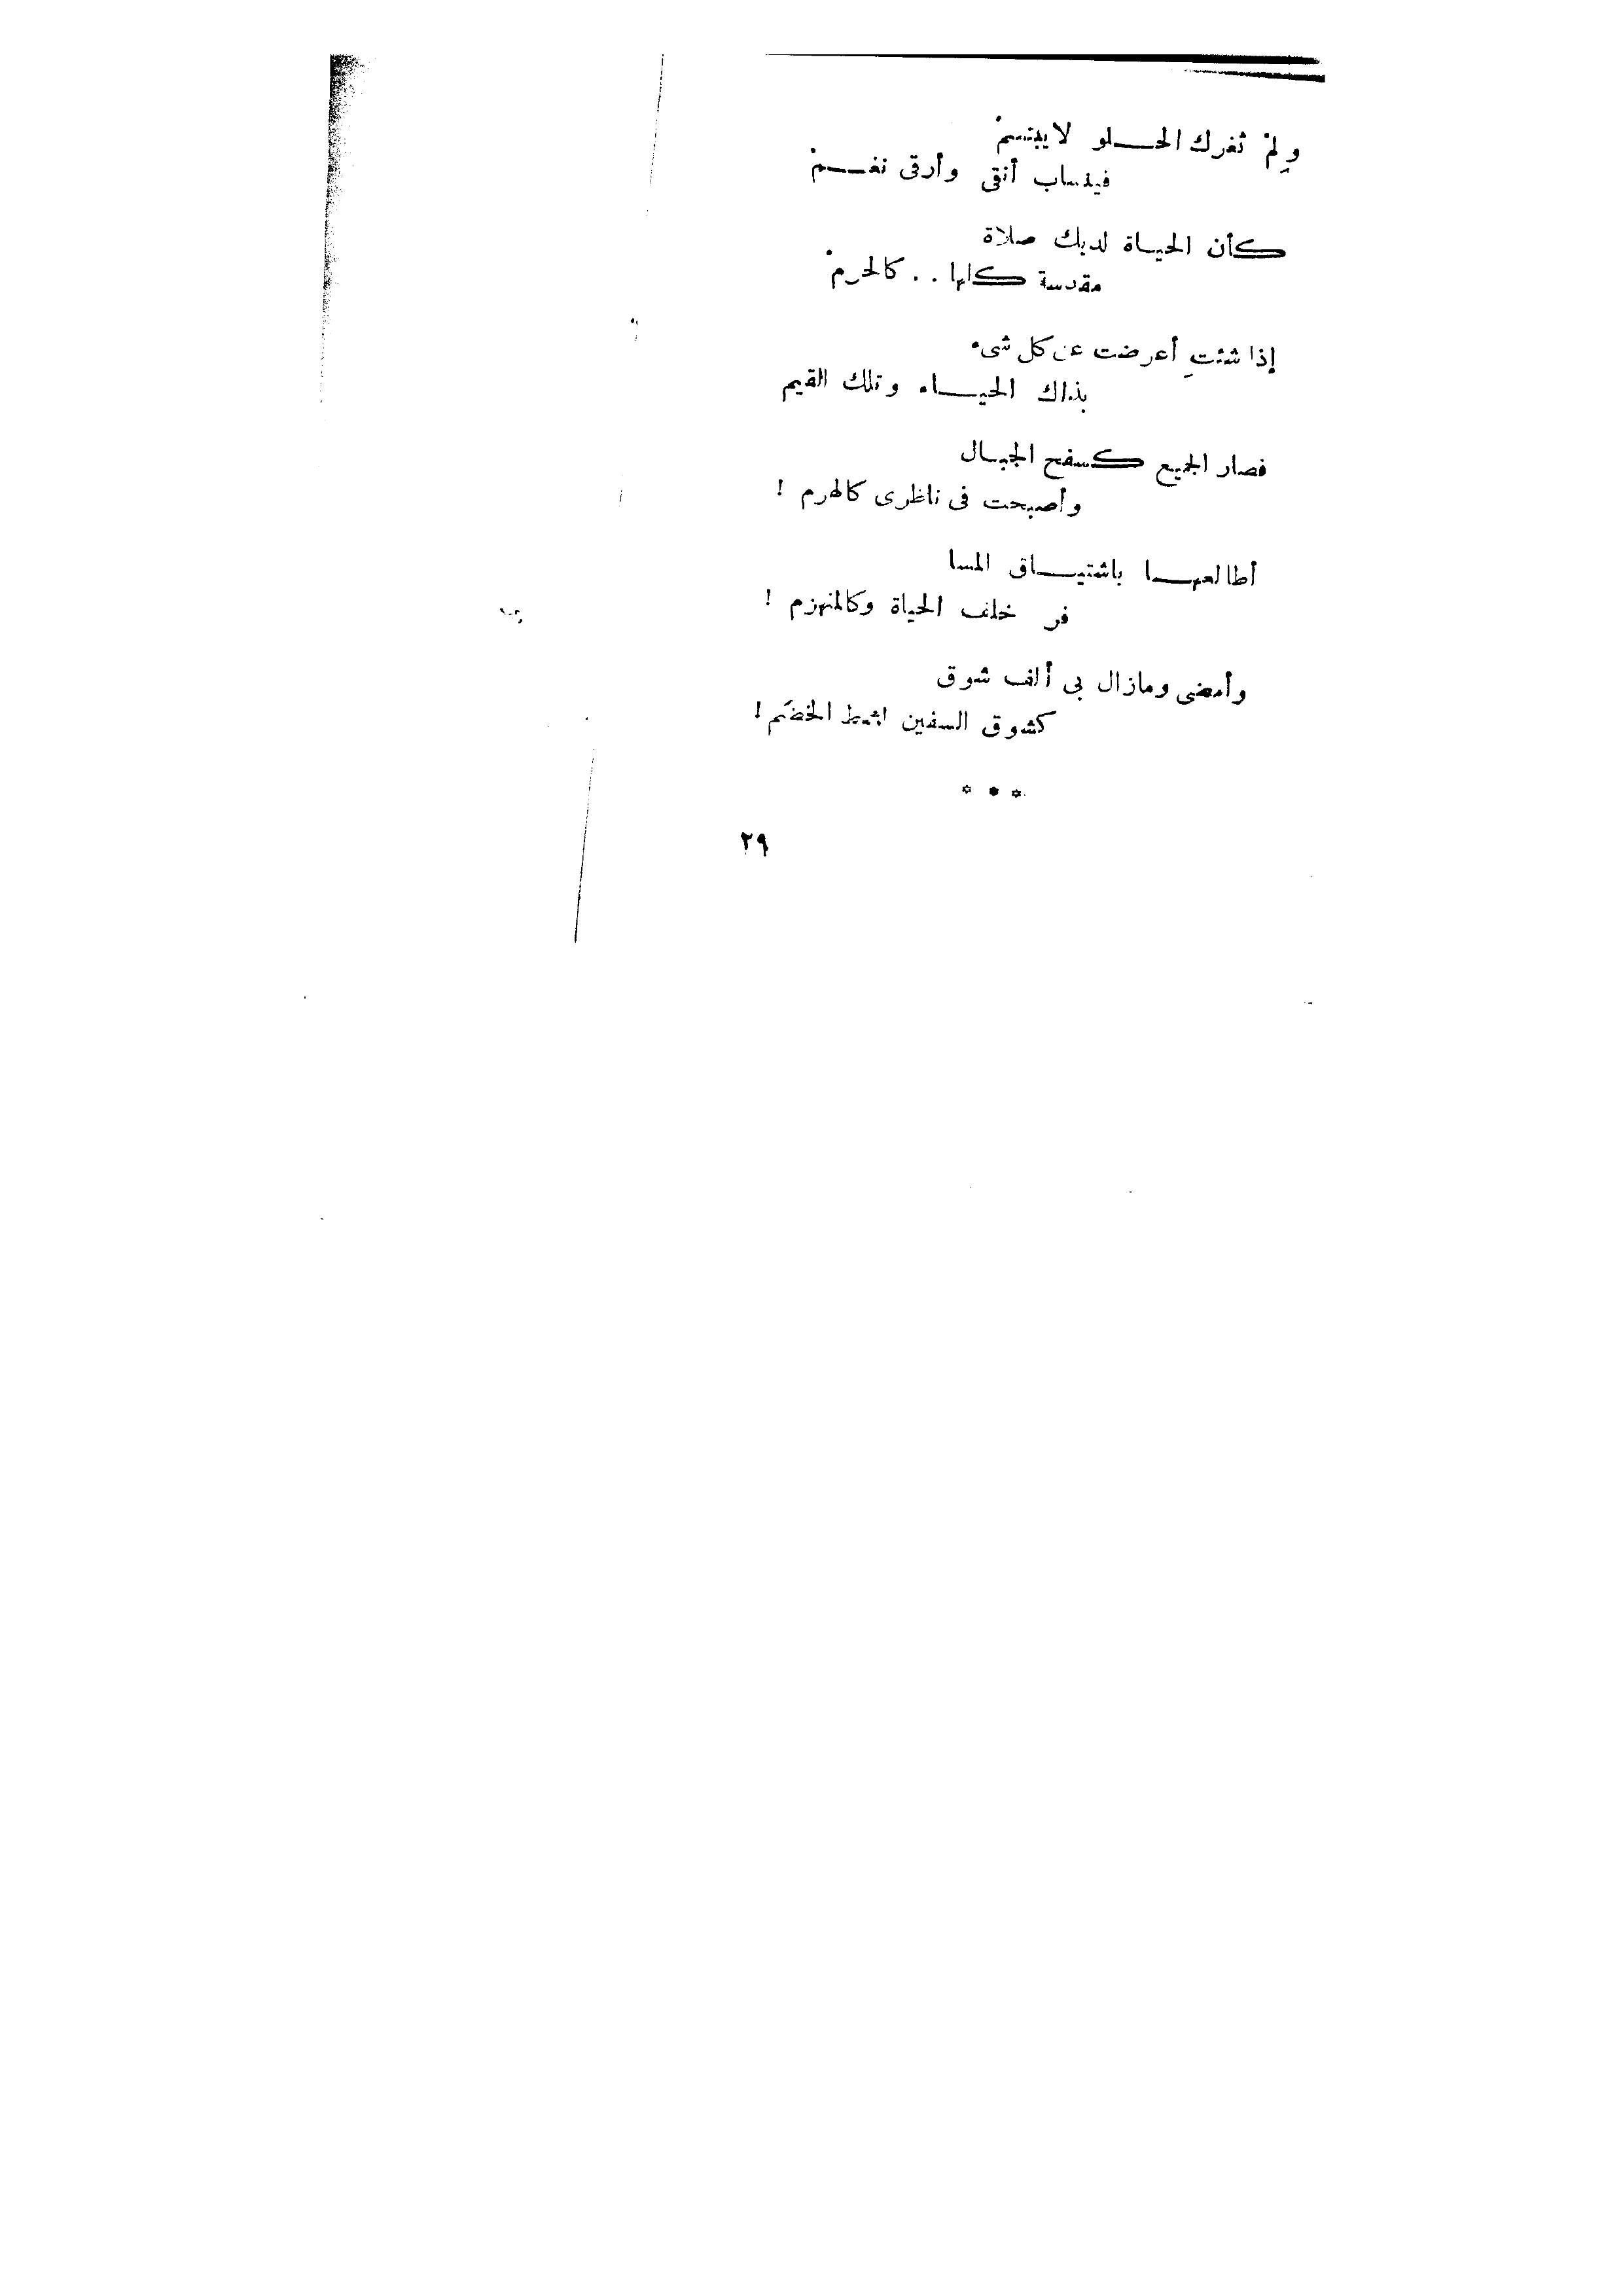 ولِمْ ثغرك الحلو لا يبتسمْ
فينساب أنقى وأرقى نغمْ
كأن الحياة لديك صلاة
مقدسة كلها . . كالحرمْ
إذا شئتِ أعرضت عن كل شىء
بذاك الحياء وتلك القيم
فصار الجميع كسفح الجبال
وأصبحت فى ناظرى كالهرم !
أطالعها باشتياق المسا
فر خلف الحياة وكالمنهزم !
وأمضى ومازال بى ألف شوق
كشوق السفين لشط الخضَم !
* * *
٢٩